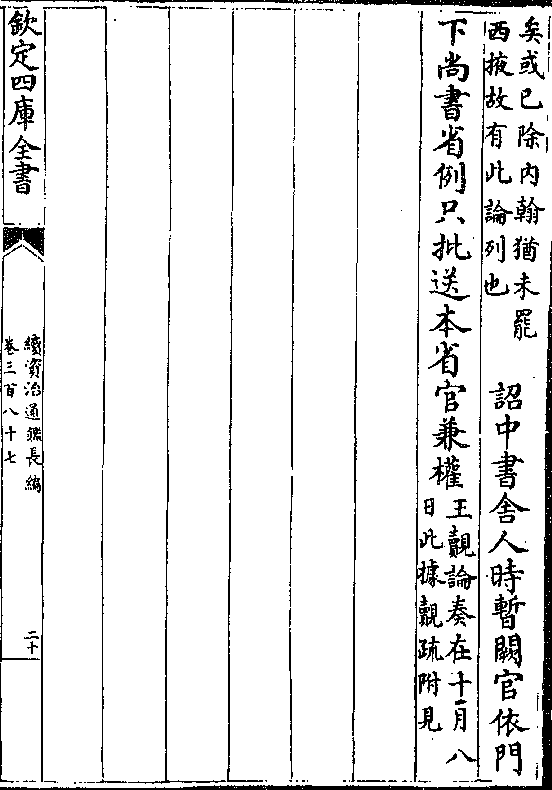 矣或已除内翰猶未罷
西掖故有此論列也
詔中書舍人時暫闕官依門
下尚書省例只批送本省官兼權
王覿論奏在十一月八
日此據覿疏附見
欽定四庫全書
續資治通鑑長編
卷三百八十七
二十